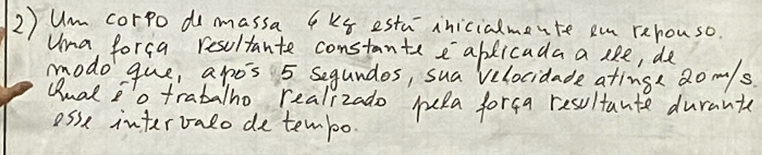 2) Um corpo de massa 6 kg está inicialmente em repouso.
Uma força resultante constante é aplicada a ele, de
modo que, após 5 segundos, sua velocidade atinge 20 m/s.
Qual é o trabalho realizado pela força resultante durante
esse intervalo de tempo.